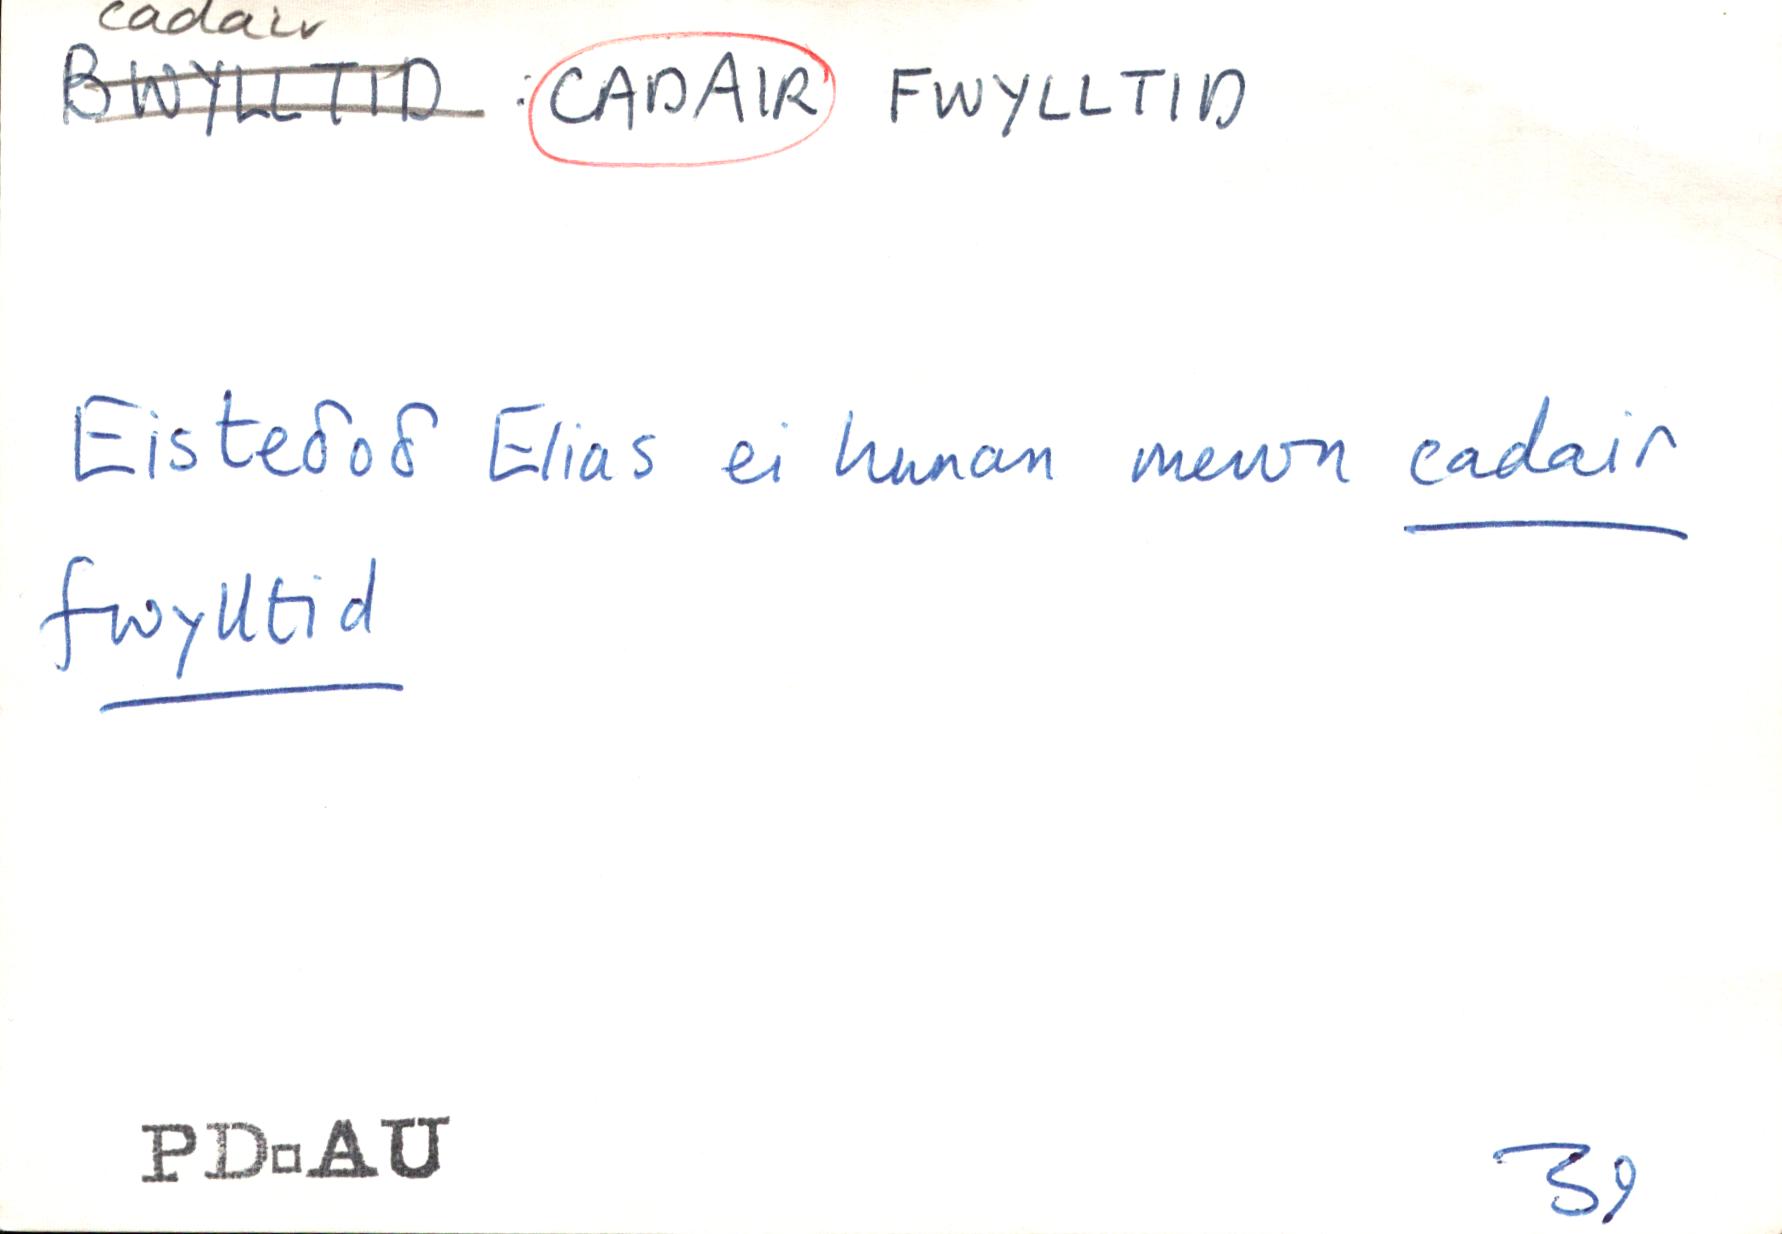 cadair
BWYLLTID : CADAIR FWYLLTID
Eisteδoδ Elias ei hunan mewn cadair
fwylltid
PD▫AU
39